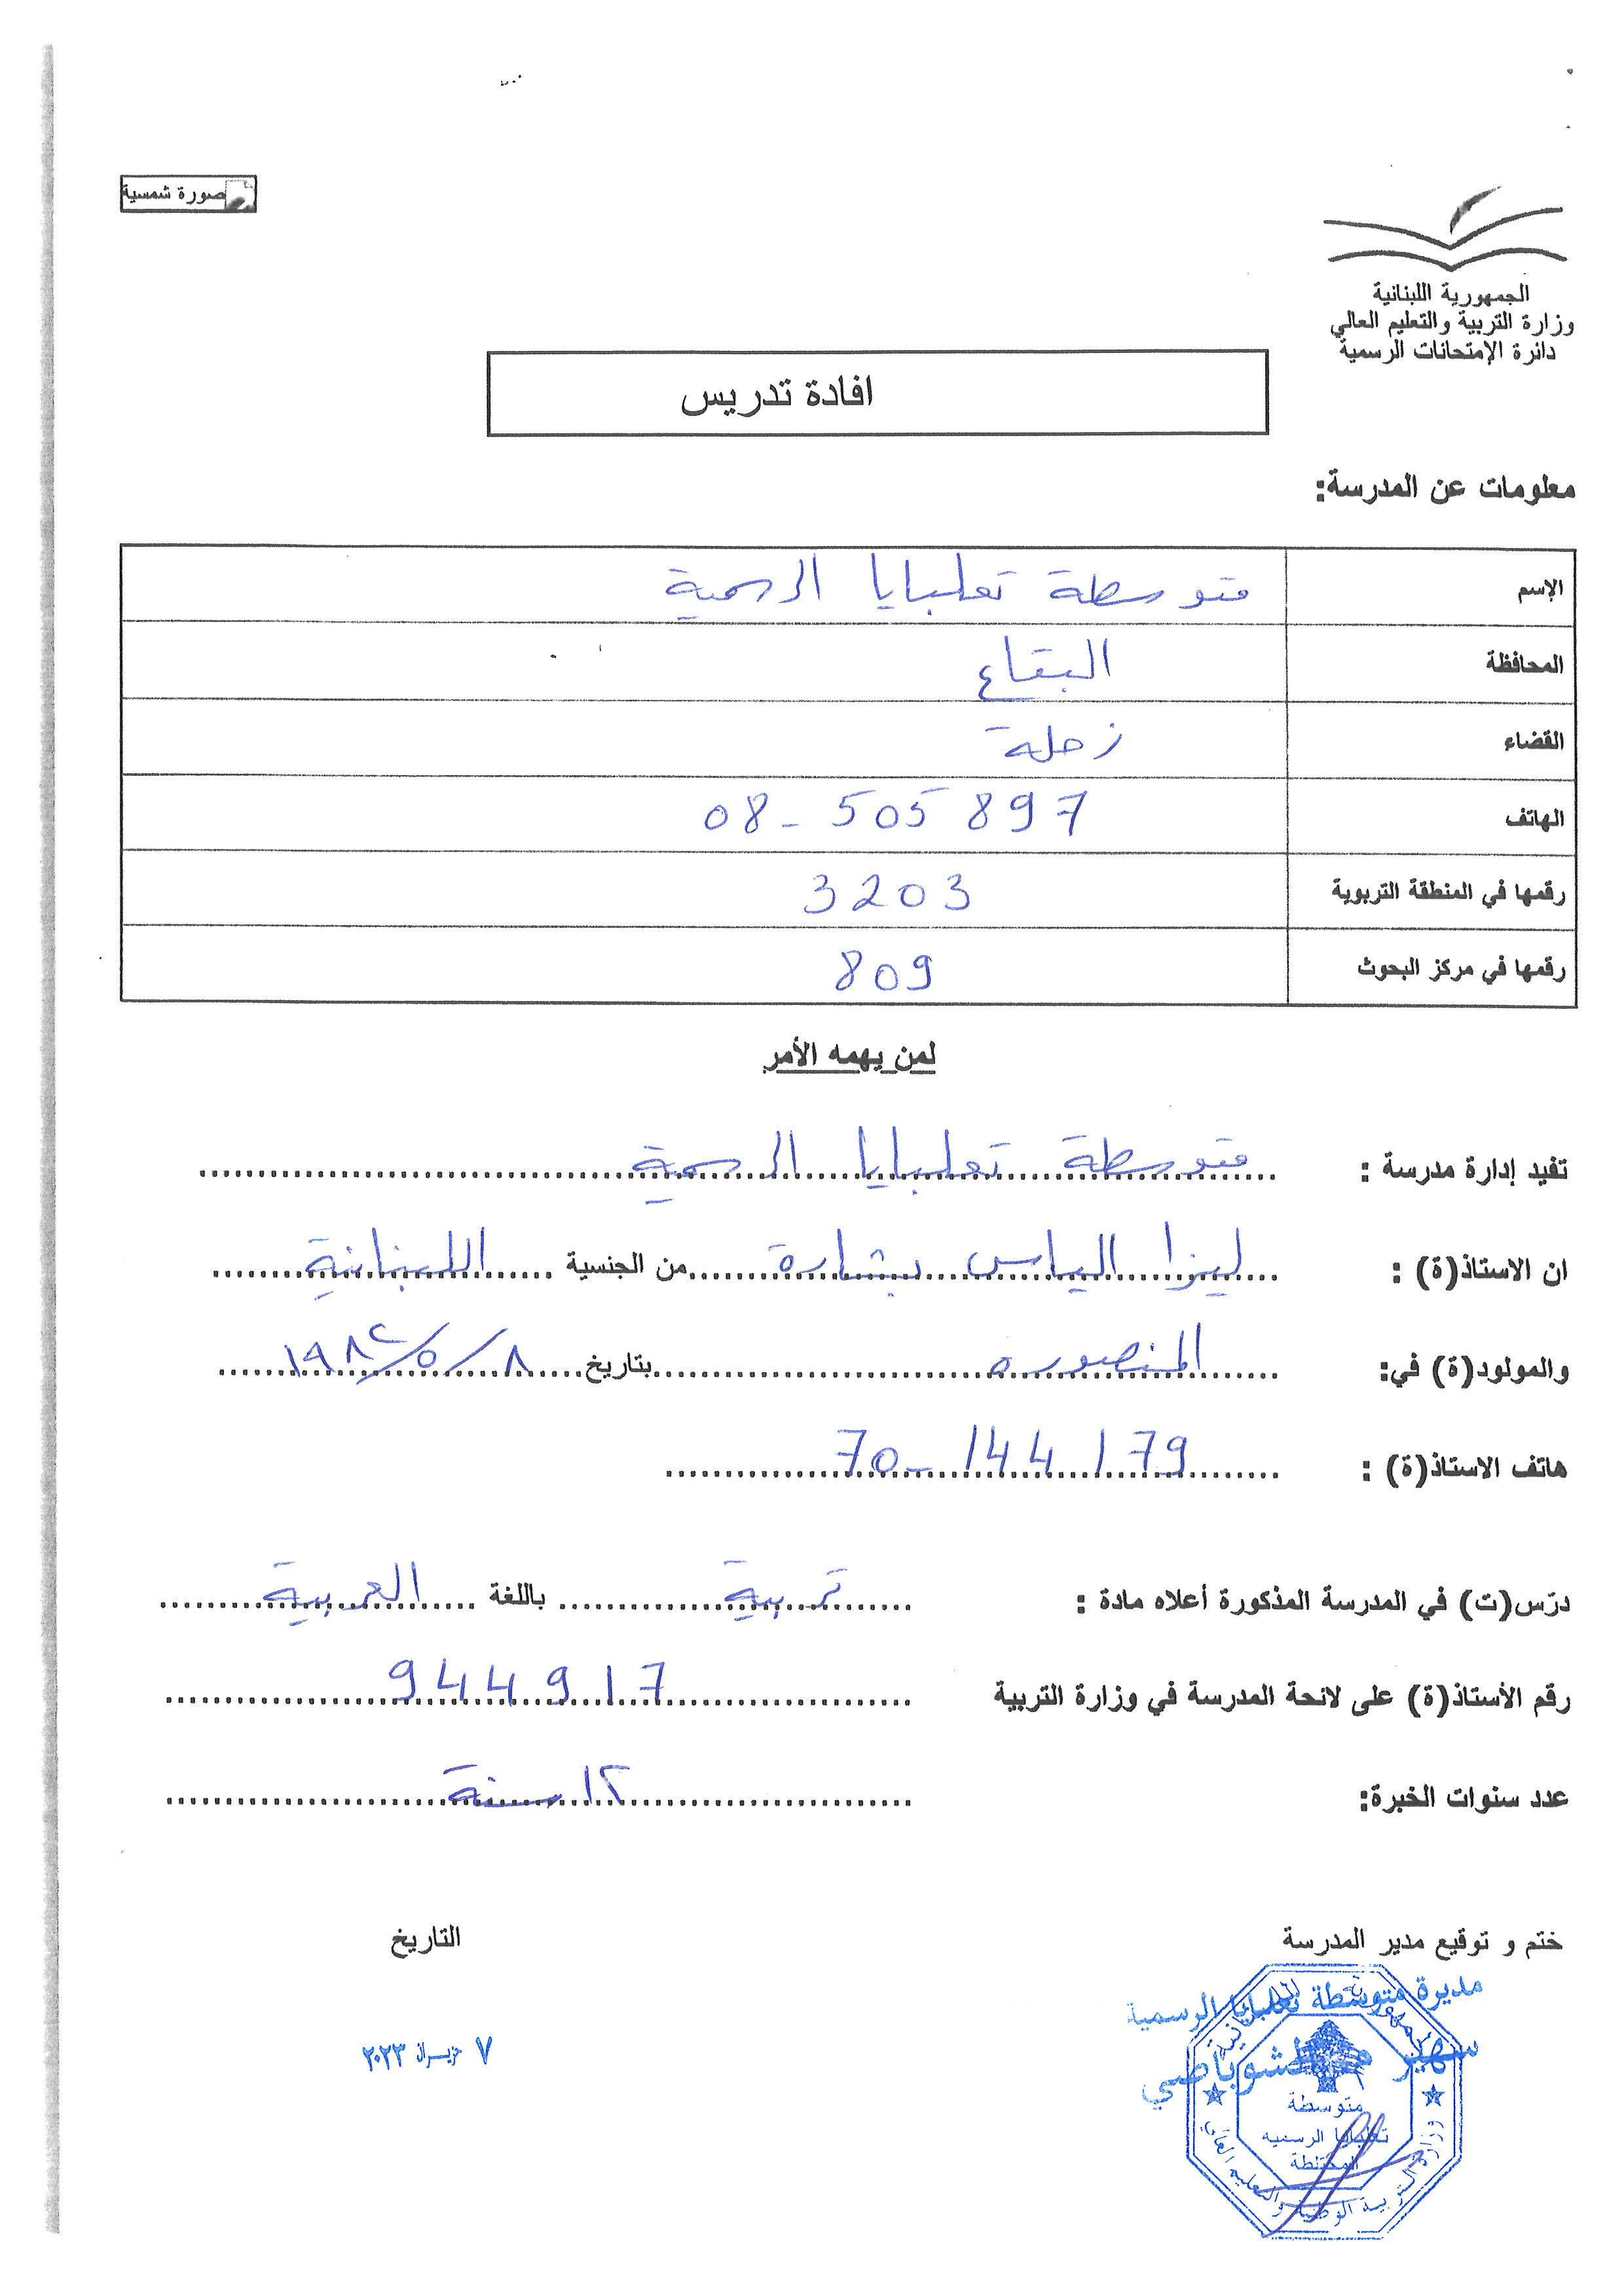 صورة شمسية
الجمهورية اللبنانية
وزارة التربية والتعليم العالي
دائرة الإمتحانات الرسمية
افادة تدريس
معلومات عن المدرسة:
الإسم متوسطة تعلبايا الرسمية
المحافظة البقاع
القضاء زحلة
الهاتف 08-505897
رقمها في المنطقة التربوية 3203
رقمها في مركز البحوث 809
لمن يهمه الأمر
تفيد إدارة مدرسة : متوسطة تعلبايا الرسمية
ان الاستاذ(ة) : ليزا الياس بشارة من الجنسية اللبنانية
والمولود(ة) في: المنصوره بتاريخ ٨/٥/١٩٨٢
هاتف الاستاذ(ة) : 70-144179
درّس(ت) في المدرسة المذكورة أعلاه مادة : تربية باللغة العربية
رقم الأستاذ(ة) على لائحة المدرسة في وزارة التربية 944917
عدد سنوات الخبرة: ١٢ سنة
ختم و توقيع مدير المدرسة التاريخ
مديرة متوسطة تعلبايا الرسمية
سهير شوباصي
٧ حزيران ٢٠٢٣
الجمهورية اللبنانية
متوسطة
تعلبايا الرسمية
المختلطة
وزارة التربية الوطنية والتعليم العالي